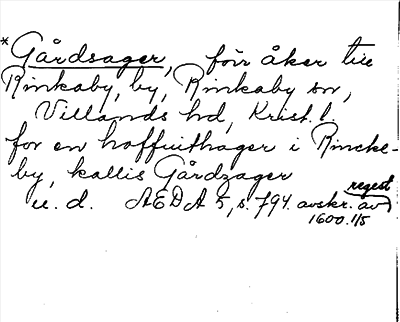 *Gårdsager, förr åker till
Rinkaby, by, Rinkaby sn,
Villands hd, Krist. l.
for en hoffuithager i Rincke-
by, kallis Gårdzager
regest
u. d. AEDA 5, s. 794. avskr. av
1600.1/5